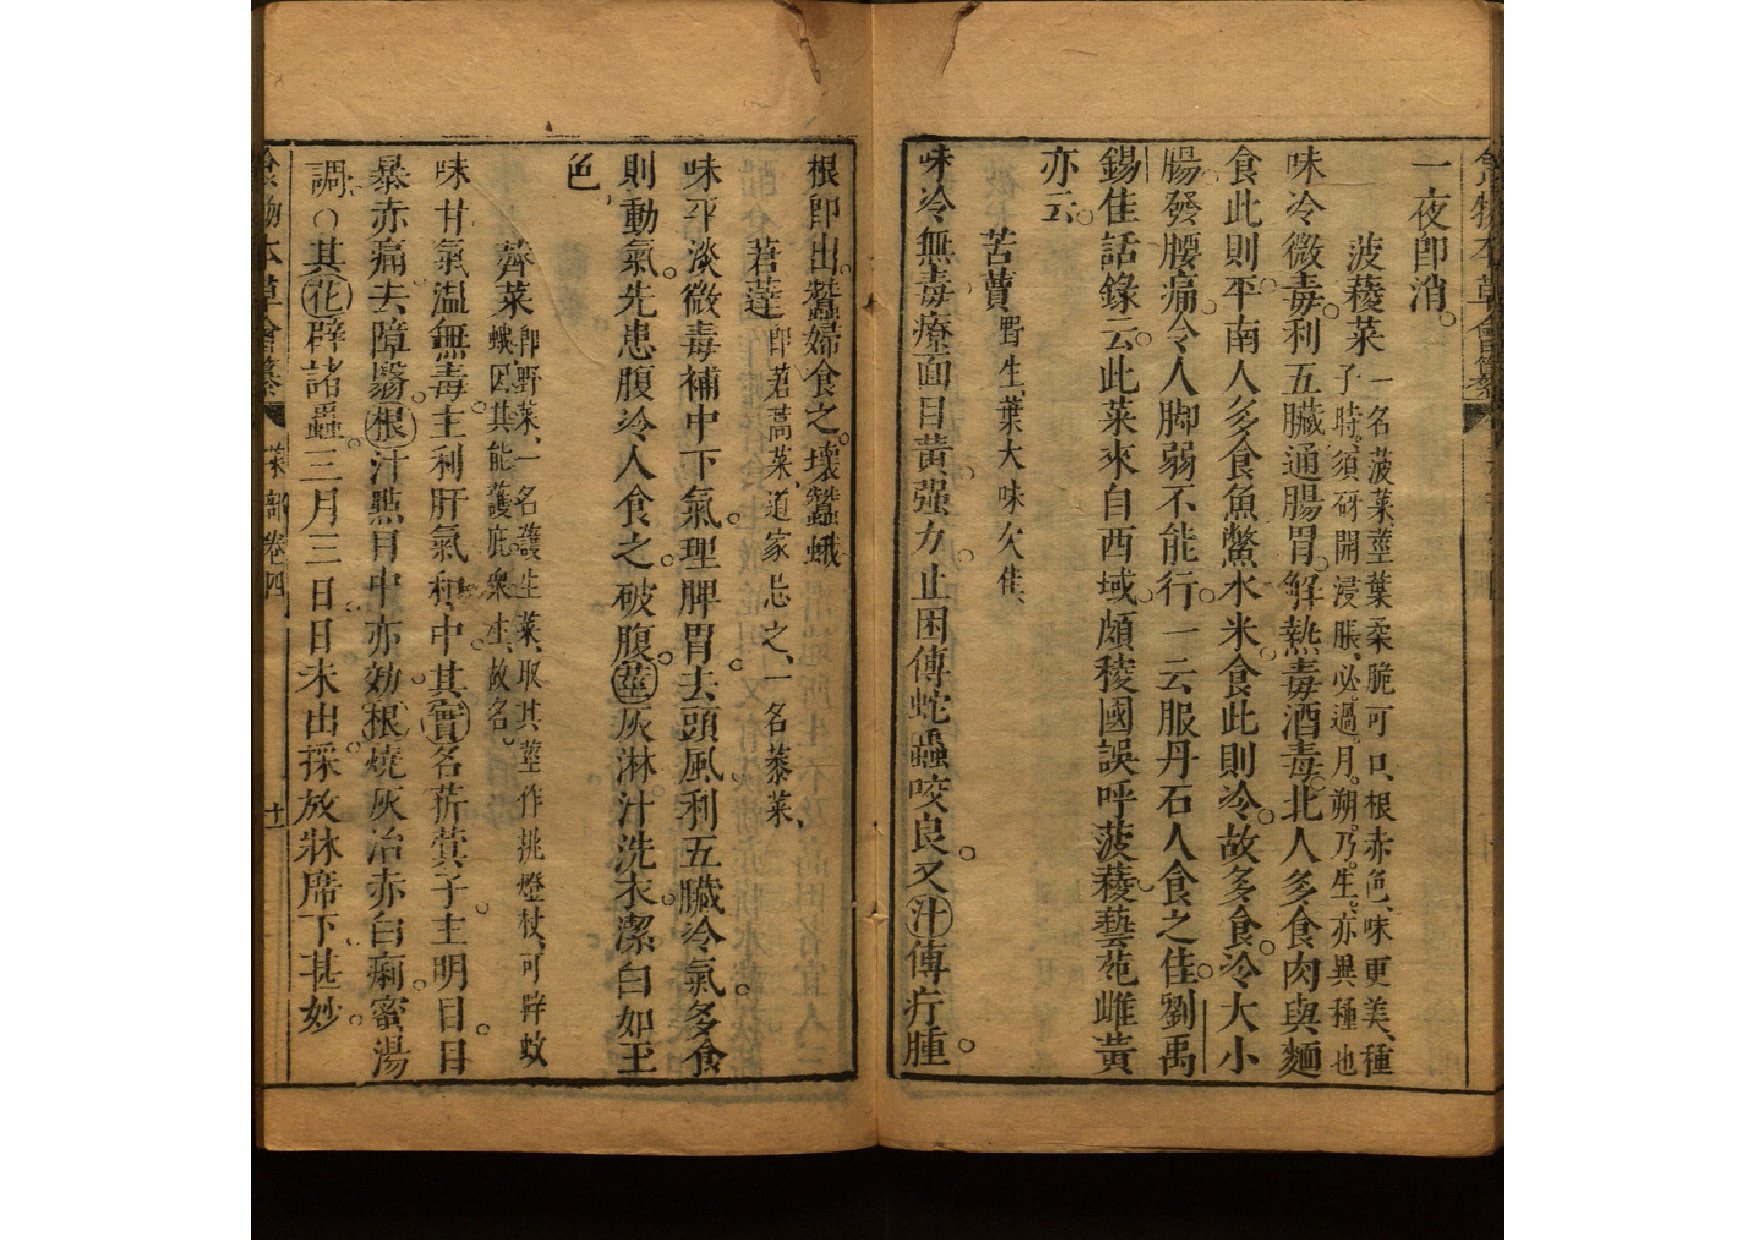 一夜卽消。
菠薐菜一名菠菜、莖葉柔脆可口、根赤色、味更美、種
子時、須硏開浸脹、必過月朔、乃生、亦異種也
味冷微毒。利五臟通腸胃。解熱毒酒毒。北人多食肉與麵
食此則平。南人多食魚鱉水米。食此則冷。故多食。冷大小
腸發腰痛。令人脚弱不能行。一云服丹石人食之佳。劉禹
錫佳話錄云。此菜來自西域。頗稜國誤呼菠薐。藝苑雌黃
亦云。
苦蕒野生、葉大味欠佳、
味冷無毒。療面目黃。强力。止困傅蛇蟲咬良。又汁傅疔腫。
根卽出。蠶婦食之。壞蠶蛾
莙薘卽莙蒿菜、道家忌之、一名菾菜、
味平淡微毒補中下氣。理脾胃。去頭風。利五臟冷氣。多食
則動氣。先患腹冷人食之。破腹。莖灰淋汁洗衣。潔白如玉
色、
薺菜卽野菜、一名護生菜、取其莖作挑燈杖、可辟蚊
蛾、因其能護庇衆生、故名。
味甘氣溫無毒。主利肝氣和中。其實名菥蓂子。主明目。目
暴赤痛去障翳。根汁點目中亦効。根燒灰治赤白痢。蜜湯
調。○其花辟諸蟲。三月三日。日未出。採放牀席下甚妙。
食物本草會纂
菜部卷四
十一